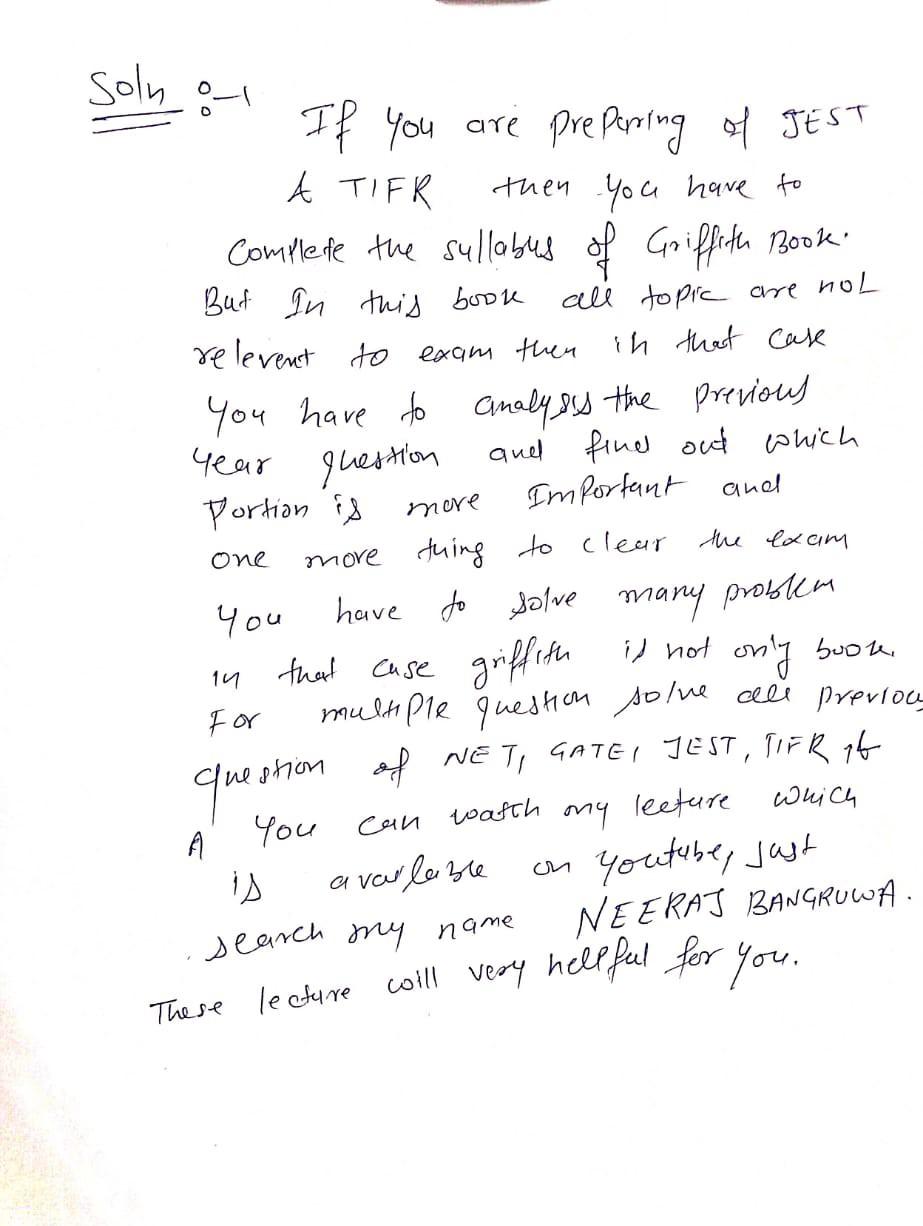 Soln :-
If you are preparing of JEST
& TIFR then you have to
Complete the syllabus of Griffith Book.
But In this book all topic are not
relevent to exam then in that case
you have to analysis the previous
year question and find out which
Portion is more Important and
one more thing to clear the exam
you have to solve many problem
in that case griffith is not only book.
For multiple question solve all previou
question of NET, GATE, JEST, TIFR
& You can watch my lecture which
is available on youtube, Just
search my name NEERAJ BANGRUWA.
These lecture will very helpful for you.